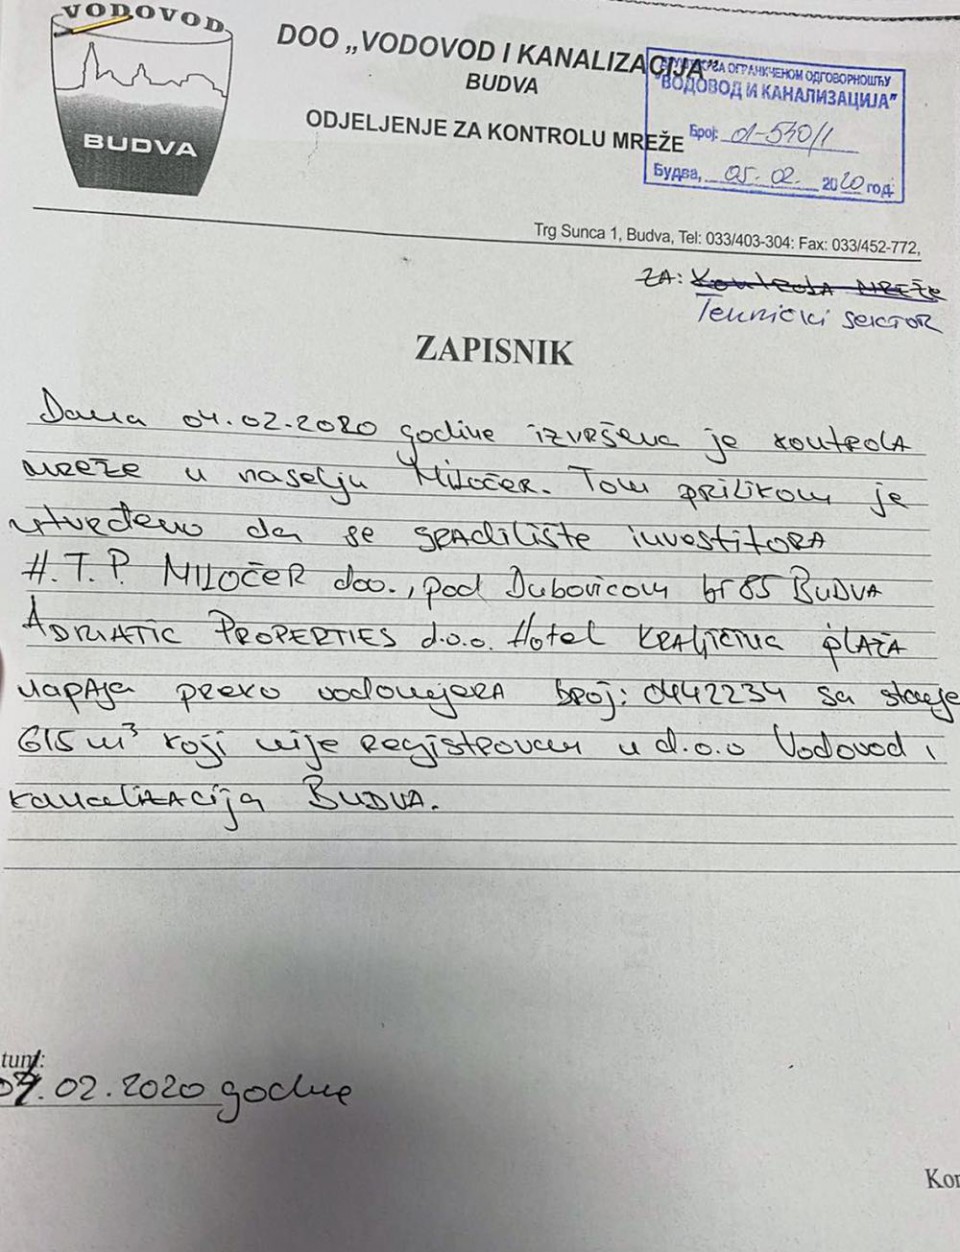 VODOVOD
BUDVA
DOO „VODOVOD I KANALIZACIJA”
BUDVA
ODJELJENJE ZA KONTROLU MREŽE
ОГРАНИЧЕНОМ ОДГОВОРНОШЋУ
"ВОДОВОД И КАНАЛИЗАЦИЈА"
Број: 01-540/1
Будва, 05.02. 2020 год.
Trg Sunca 1, Budva, Tel: 033/403-304: Fax: 033/452-772,
ZA: Kontrola mreže
Tehnički sektor
ZAPISNIK
Dana 04.02.2020 godine izvršena je kontrola
mreže u naselju Miločer. Tom prilikom je
utvrđeno da se gradilište investitora
H.T.P. Miločer doo., pod Dubovicom br 85 Budva
Adriatic Properties d.o.o. Hotel Kraljičina plaža
napaja preko vodomjera broj: 0442234 sa stanje
615 m³ koji nije registrovan u d.o.o Vodovod i
kanalizacija Budva.
tum:
04.02.2020 godine
Kon